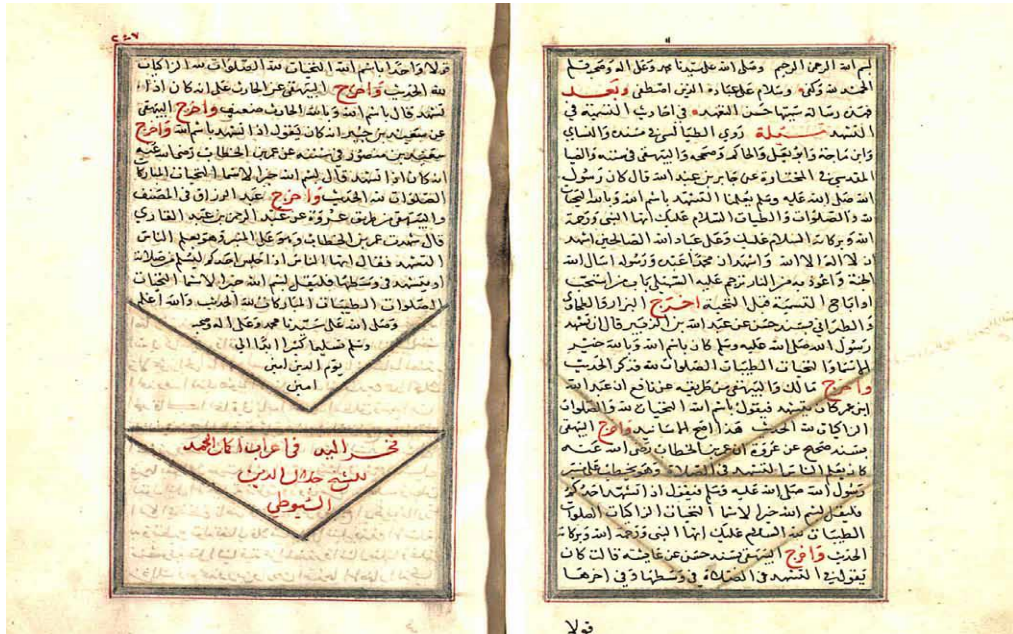 بسم الله الرحمن الرحيم وصلى الله على سيدنا محمد وعلى اله وصحبه وسلم
الحمد لله وكفى وسلام على عباده الذين اصطفى وبعد
فهذه رسالة سميتها حسن التعهد في احاديث التسمية في
التشهد مسئلة روى الطيالسي في مسنده والنساي
وابن ماجة وابو يعلى والحاكم وصححه والبيهقي في سننه والضيا
المقدسي في المختارة عن جابر بن عبد الله قال كان رسول
الله صلى الله عليه وسلم يعلمنا التشهد باسم الله وبالله التحيات
لله والصلوات والطيبات السلام عليك ايها النبي ورحمة
الله وبركاته السلام علينا وعلى عباد الله الصالحين اشهد
ان لا اله الا الله واشهد ان محمدا عبده ورسوله اسال الله
الجنة واعوذ به من النار ترجم عليه البيهقي باب من استحب
او اباح التسمية قبل التحية اخرج البزار و
الطبراني بسند حسن عن عبد الله بن الزبير قال ان تشهد
رسول الله صلى الله عليه وسلم كان باسم الله وبالله خير
الاسما التحيات الطيبات الصلوات لله فذكر الحديث
واخرج مالك والبيهقي من طريقه عن نافع ان عبد الله
ابن عمر كان يتشهد فيقول باسم الله التحيات لله والصلوات
الزاكيات لله الحديث هذا اصح الاسانيد واخرج البيهقي
بسند صحيح عن عروة ان عمر بن الخطاب رضي الله عنه
كان يعلم الناس التشهد في الصلاة وهو يخطب على منبر
رسول الله صلى الله عليه وسلم فيقول اذا تشهد احدكم
فليقل بسم الله خير الاسما التحيات الزاكيات الصلوات
الطيبات لله السلام عليك ايها النبي ورحمة الله وبركاته
الحديث واخرج البيهقي بسند حسن عن عايشة قالت كان
يقول في التشهد في الصلاة في وسطها وفي اخرها
قولا
٢٤٧
قولا واحدا باسم الله التحيات لله الصلوات لله الزاكيات
لله الحديث واخرج البيهقي عن الحارث عن علي انه كان اذا
تشهد قال باسم الله وبالله الحارث ضعيف واخرج البيهقي
عن سعيد بن جبير انه كان يقول اذا تشهد باسم الله واخرج
سعيد بن منصور في سننه عن عمر بن الخطاب رضي الله عنه
انه كان اذا تشهد قال بسم الله خير الاسما التحيات المباركات
الصلوات لله الحديث واخرج عبد الرزاق في المصنف
والبيهقي من طريق عروة عن عبد الرحمن بن عبد القاري
قال شهدت عمر بن الخطاب وهو على المنبر وهو يعلم الناس
التشهد فقال ايها الناس اذا جلس احدكم ليسلم من صلاته
او يتشهد في وسطها فليقل بسم الله خير الاسما التحيات
الصلوات الطيبات المباركات لله الحديث والله اعلم
وصلى الله على سيدنا محمد وعلى اله وصحبه
وسلم تسليما كثيرا دايما الى
يوم الدين امين
امين
فجر الثمد في اعراب اكمل الحمد
للشيخ جلال الدين
السيوطي